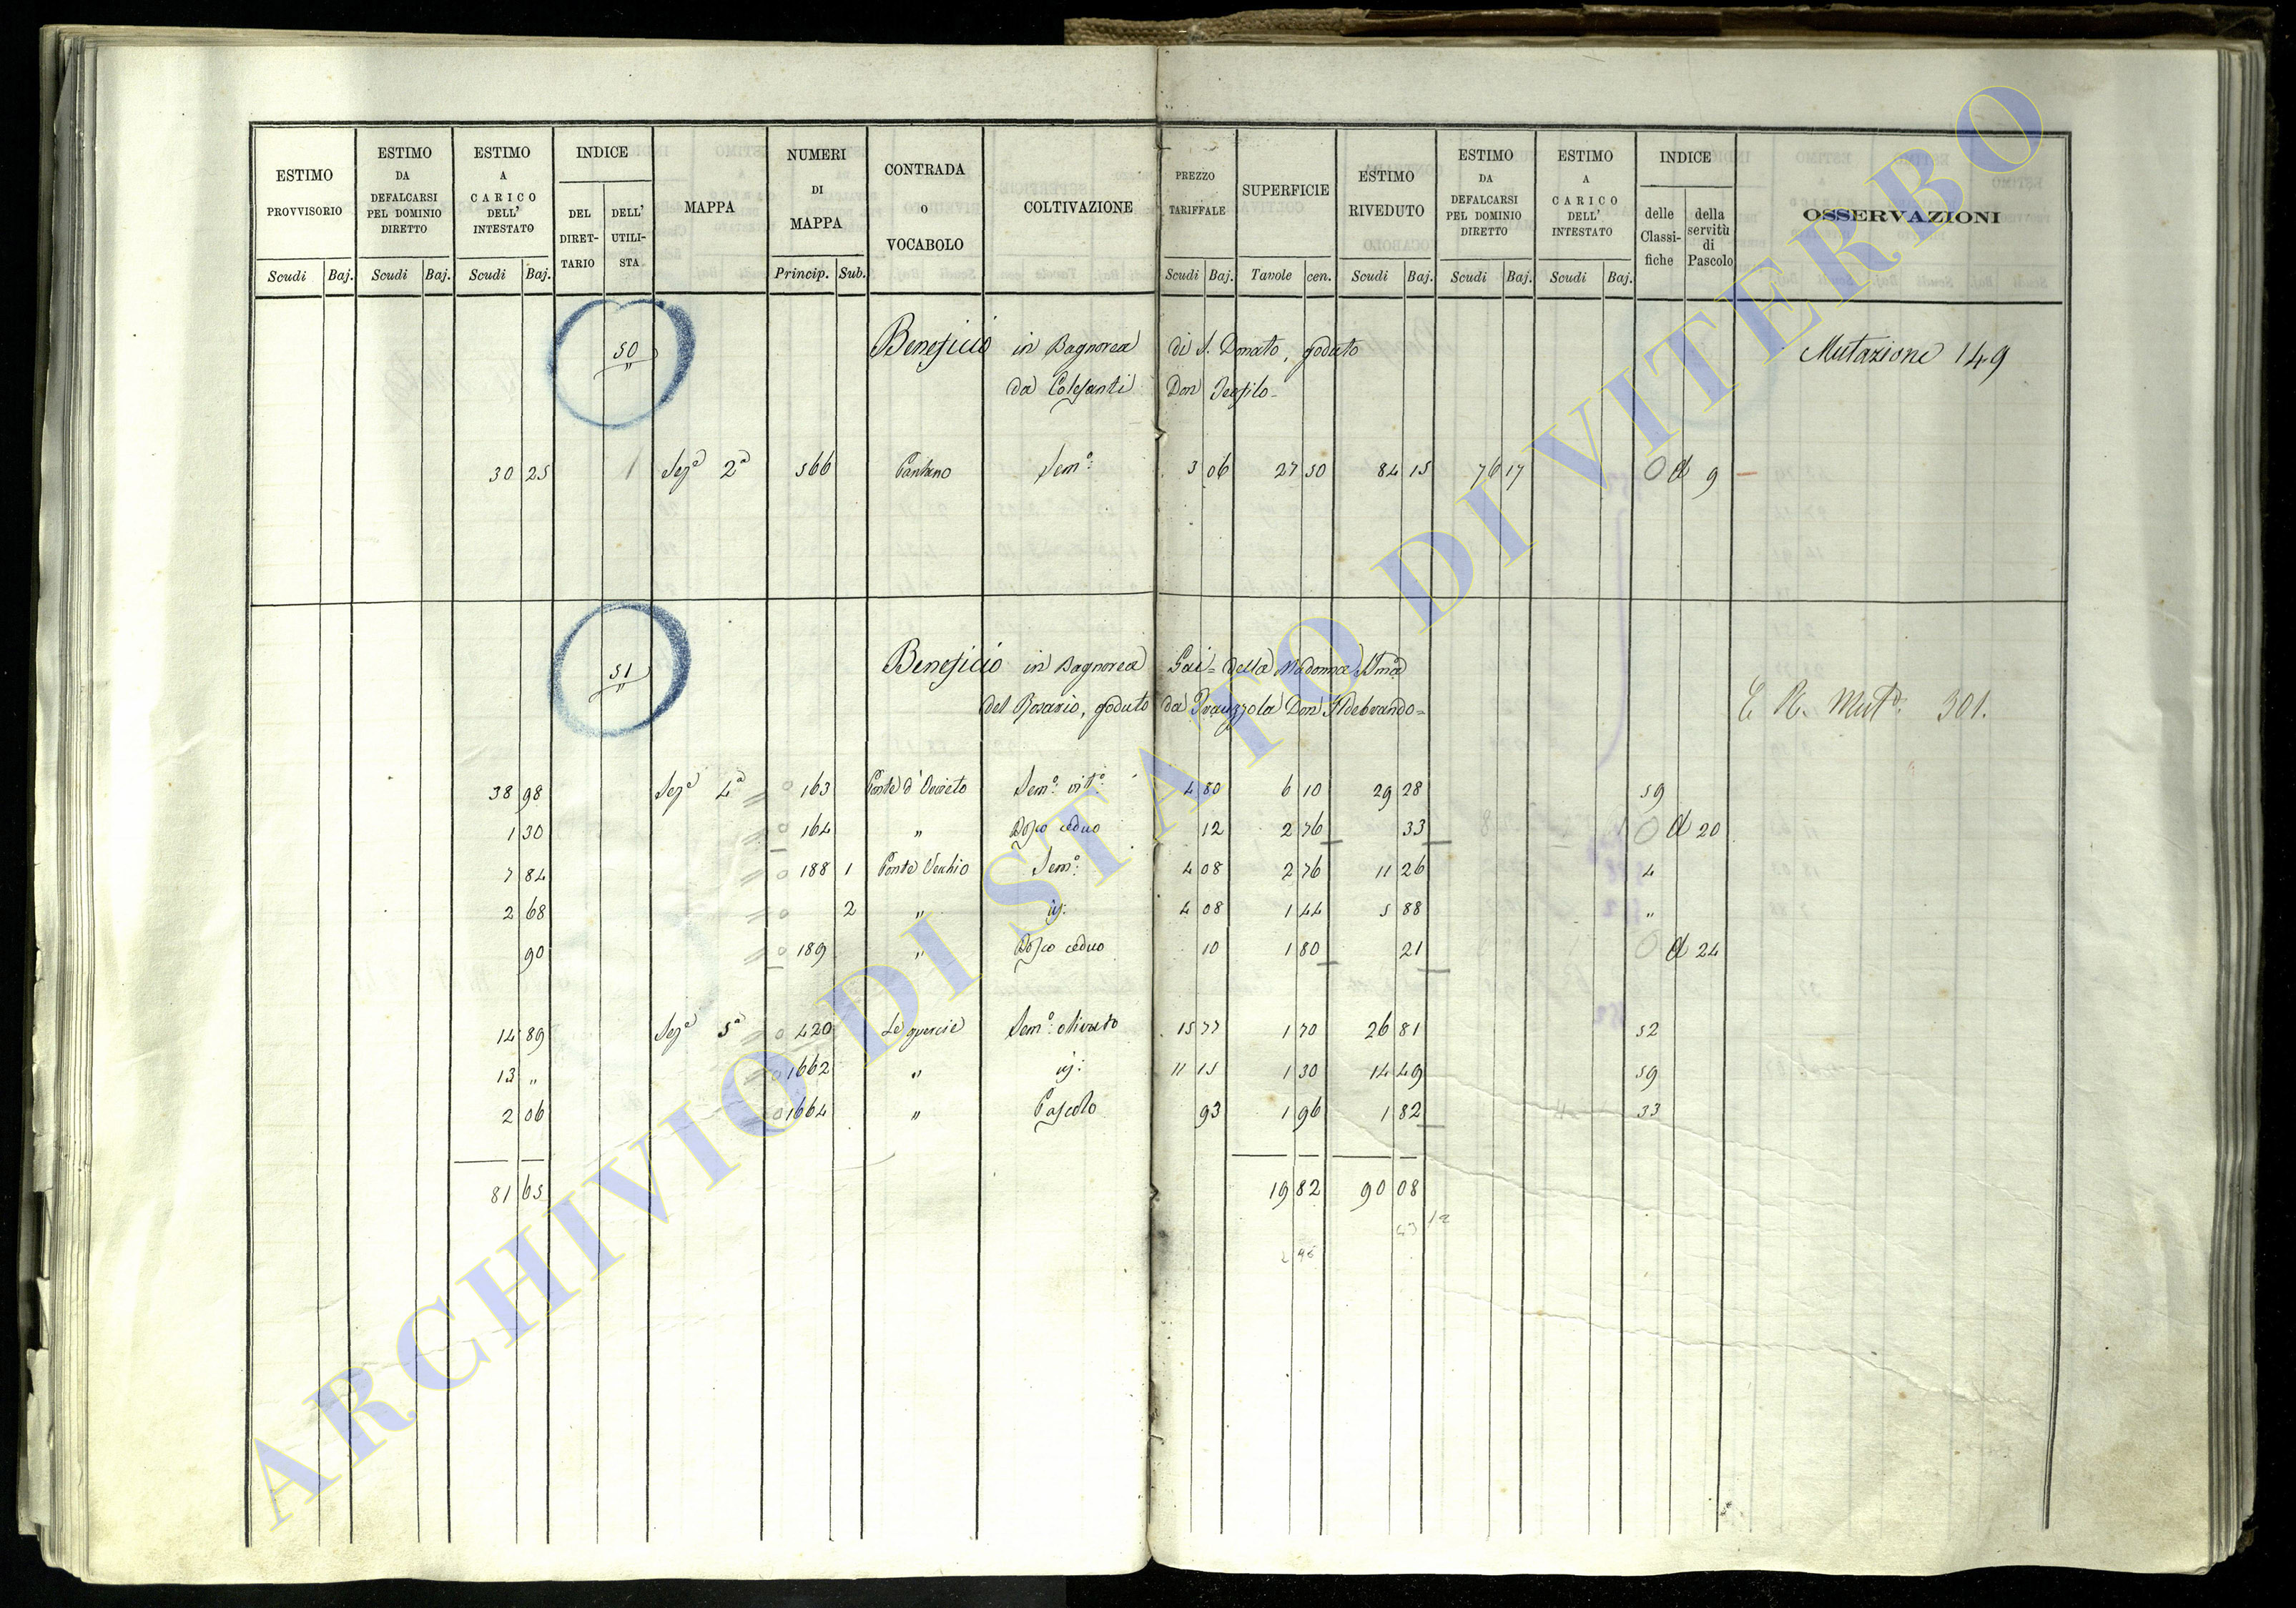 ESTIMO PROVVISORIO | ESTIMO DA DEFALCARSI PEL DOMINIO DIRETTO | ESTIMO A CARICO DELL' INTESTATO | INDICE | MAPPA | NUMERI DI MAPPA | CONTRADA O VOCABOLO | COLTIVAZIONE | PREZZO TARIFFALE | SUPERFICIE | ESTIMO RIVEDUTO | ESTIMO DA DEFALCARSI PEL DOMINIO DIRETTO | ESTIMO A CARICO DELL' INTESTATO | INDICE | OSSERVAZIONI
DEL DIRETTARIO | DELL' UTILISTA | delle Classifiche | della servitù di Pascolo
Scudi Baj. Scudi Baj. Scudi Baj. Princip. Sub. Scudi Baj. Tavole cen. Scudi Baj. Scudi Baj. Scudi Baj.
50 Beneficio in Bagnorea di S. Donato, goduto Mutazione 149
da Colesanti Don Teofilo
30 25 1 Seze 2a 566 Pantano Semo: 3 06 27 50 84 15 76 17 O d 9
51 Beneficio in Bagnorea della Madonna SSma
del Rosario, goduto da Don Ildebrando E R. Muta. 301.
38 98 Seze 4a 163 Ponte d' Semo: vito: 4 80 6 10 29 28 59
1 30 164 " Bosco ceduo 12 2 76 33 O d 20
7 84 188 1 Ponte Vecchio Semo: 4 08 2 76 11 26 4
2 68 2 " id: 4 08 1 44 5 88 "
90 189 " Bosco ceduo 10 1 80 21 O d 24
14 89 Seze 5a 420 Le quercie Semo: olivato 15 77 1 70 26 81 52
13 " 1662 " id: 11 15 1 30 14 49 59
2 06 1664 " Pascolo 93 1 96 1 82 33
81 65 19 82 90 08
ARCHIVIO DI STATO DI VITERBO